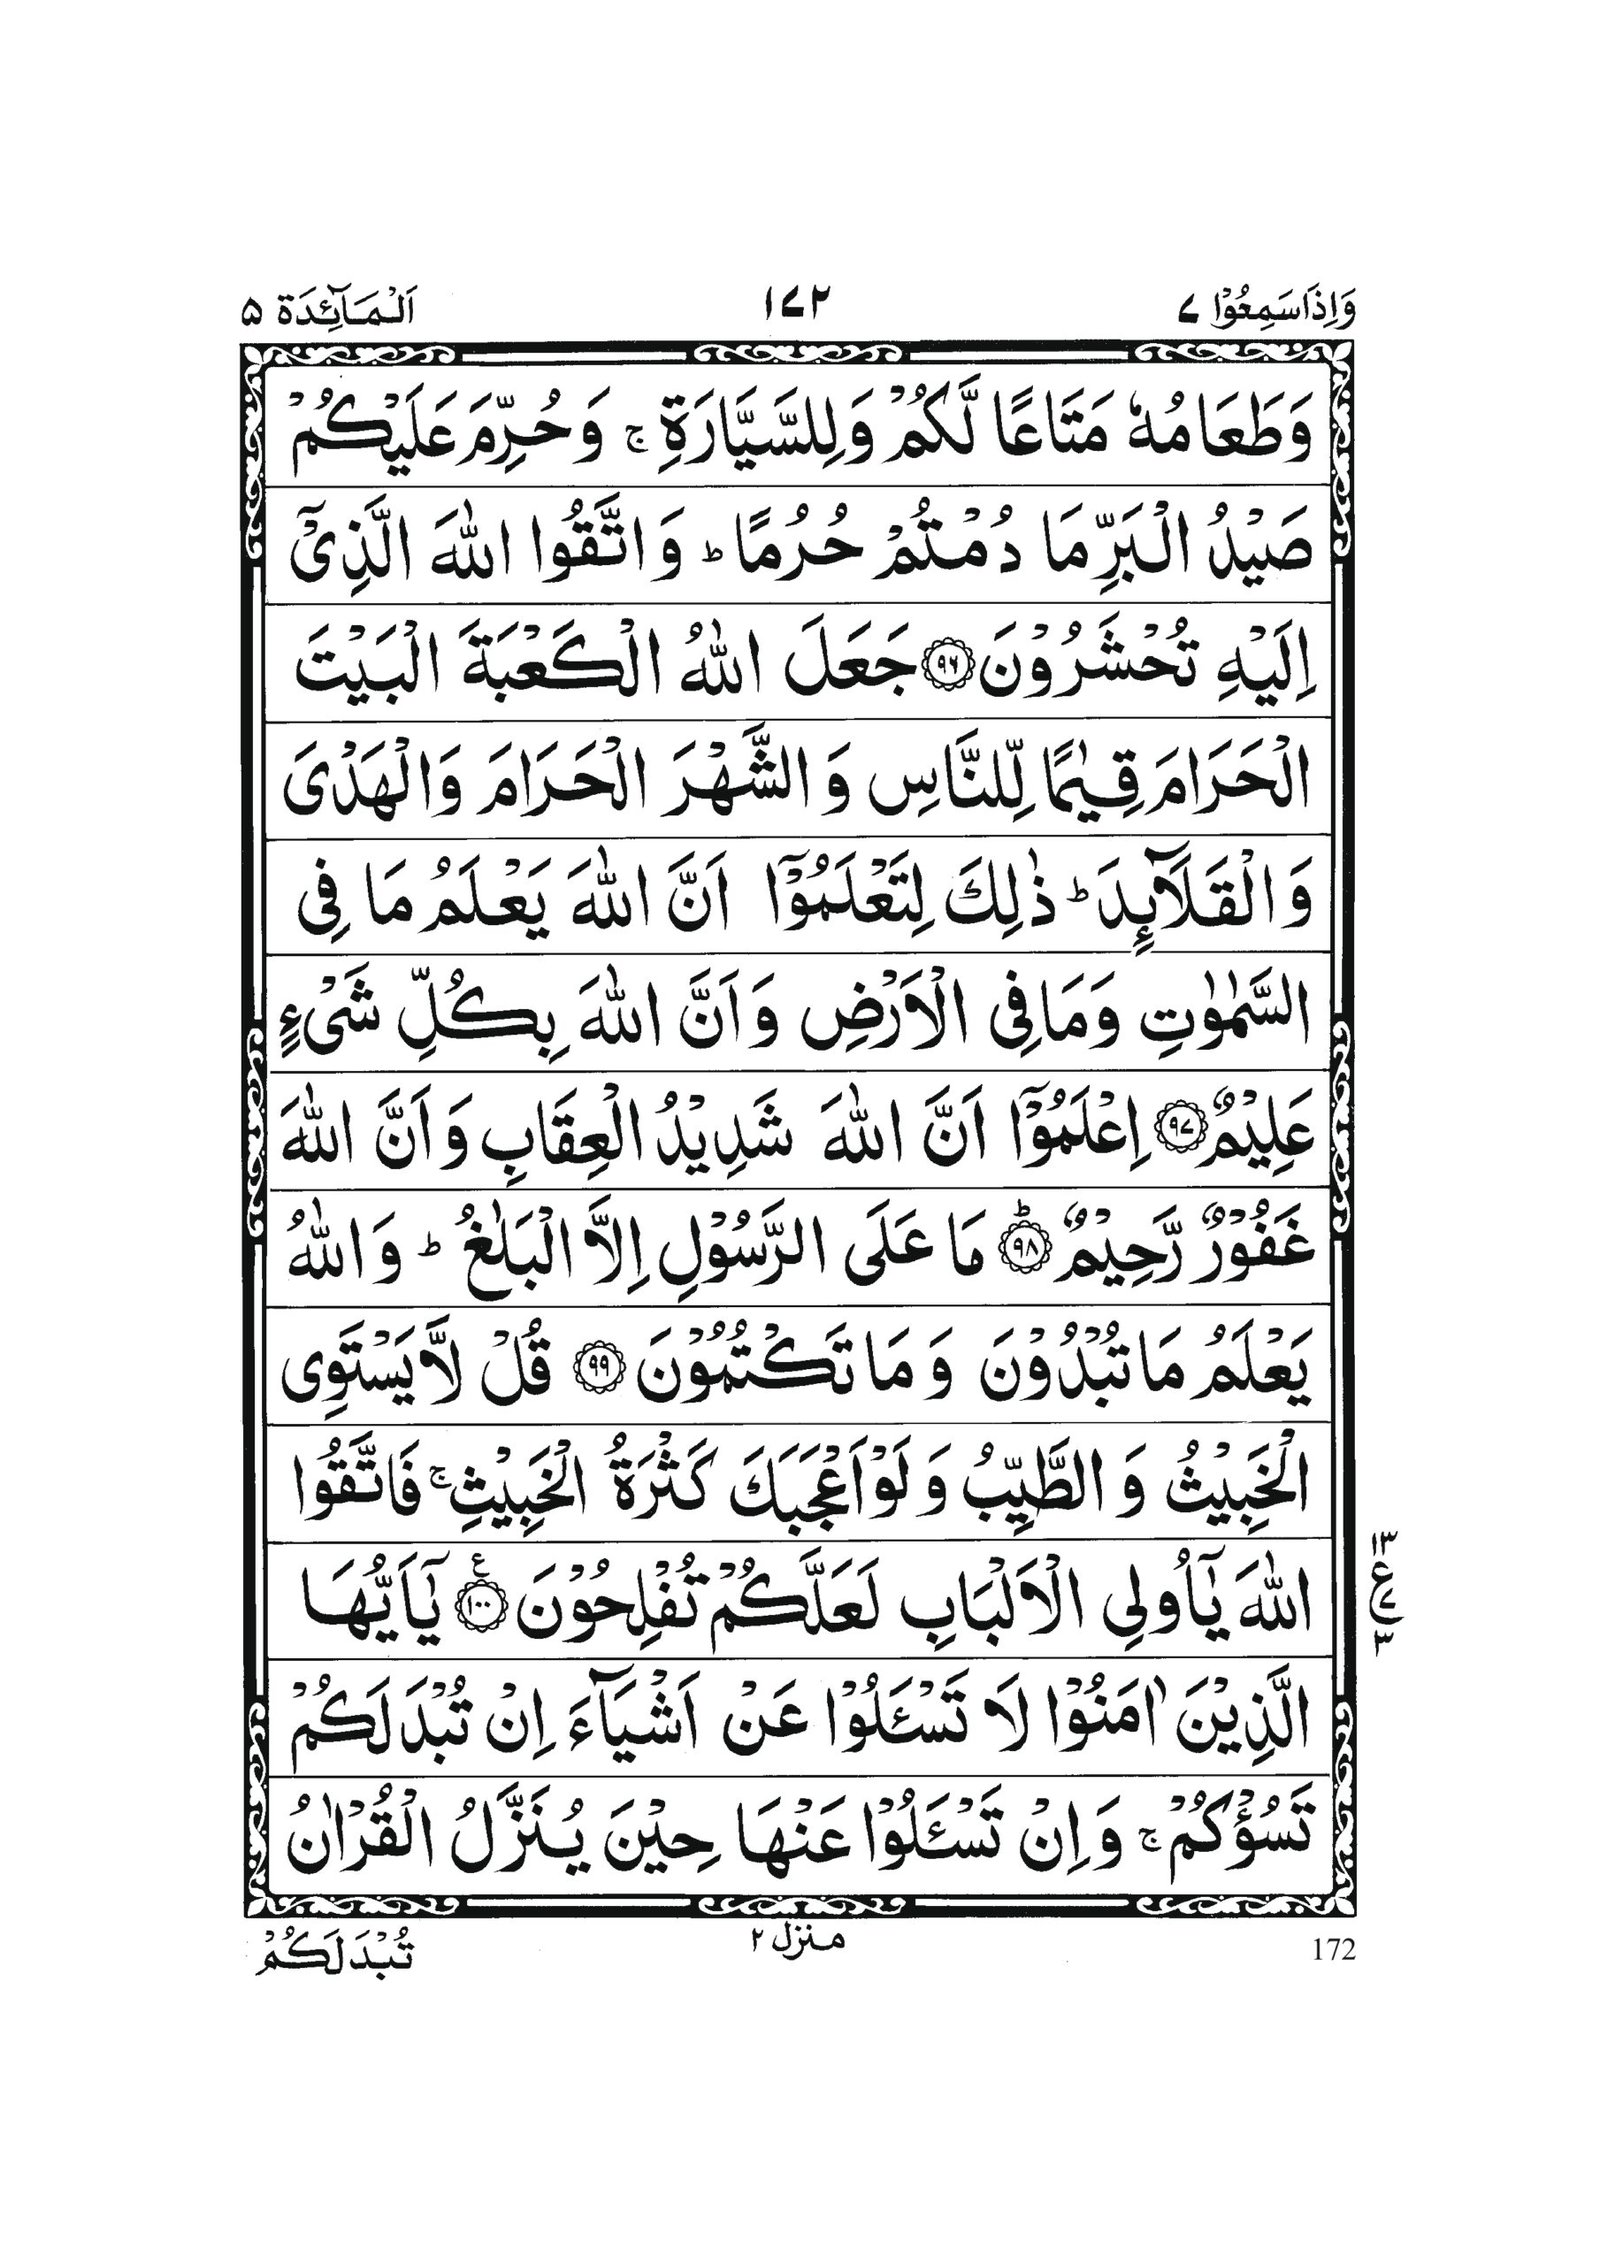 وَاِذَاسَمِعُوْا ۷ ۱۷۲ اَلْمَآئِدَة ۵
وَطَعَامُهٗ مَتَاعًا لَّكُمْ وَلِلسَّيَّارَةِ ۚ وَحُرِّمَ عَلَيْكُمْ
صَيْدُ الْبَرِّ مَا دُمْتُمْ حُرُمًا ؕ وَاتَّقُوا اللّٰهَ الَّذِىْٓ
اِلَيْهِ تُحْشَرُوْنَ ﴿۹۶﴾ جَعَلَ اللّٰهُ الْكَعْبَةَ الْبَيْتَ
الْحَرَامَ قِيٰمًا لِّلنَّاسِ وَالشَّهْرَ الْحَرَامَ وَالْهَدْىَ
وَالْقَلَآئِدَ ؕ ذٰلِكَ لِتَعْلَمُوْٓا اَنَّ اللّٰهَ يَعْلَمُ مَا فِى
السَّمٰوٰتِ وَمَا فِى الْاَرْضِ وَاَنَّ اللّٰهَ بِكُلِّ شَىْءٍ
عَلِيْمٌ ﴿۹۷﴾ اِعْلَمُوْٓا اَنَّ اللّٰهَ شَدِيْدُ الْعِقَابِ وَاَنَّ اللّٰهَ
غَفُوْرٌ رَّحِيْمٌ ؕ ﴿۹۸﴾ مَا عَلَى الرَّسُوْلِ اِلَّا الْبَلٰغُ ؕ وَاللّٰهُ
يَعْلَمُ مَا تُبْدُوْنَ وَمَا تَكْتُمُوْنَ ﴿۹۹﴾ قُلْ لَّا يَسْتَوِى
الْخَبِيْثُ وَالطَّيِّبُ وَلَوْ اَعْجَبَكَ كَثْرَةُ الْخَبِيْثِ ۚ فَاتَّقُوا
اللّٰهَ يٰٓاُولِى الْاَلْبَابِ لَعَلَّكُمْ تُفْلِحُوْنَ ﴿۱۰۰﴾ ع يٰٓاَيُّهَا
۱۳ ع ۷ ۳
الَّذِيْنَ اٰمَنُوْا لَا تَسْـَٔلُوْا عَنْ اَشْيَآءَ اِنْ تُبْدَ لَكُمْ
تَسُؤْكُمْ ۚ وَاِنْ تَسْـَٔلُوْا عَنْهَا حِيْنَ يُنَزَّلُ الْقُرْاٰنُ
172 منزل ۲ تُبْدَ لَكُمْ